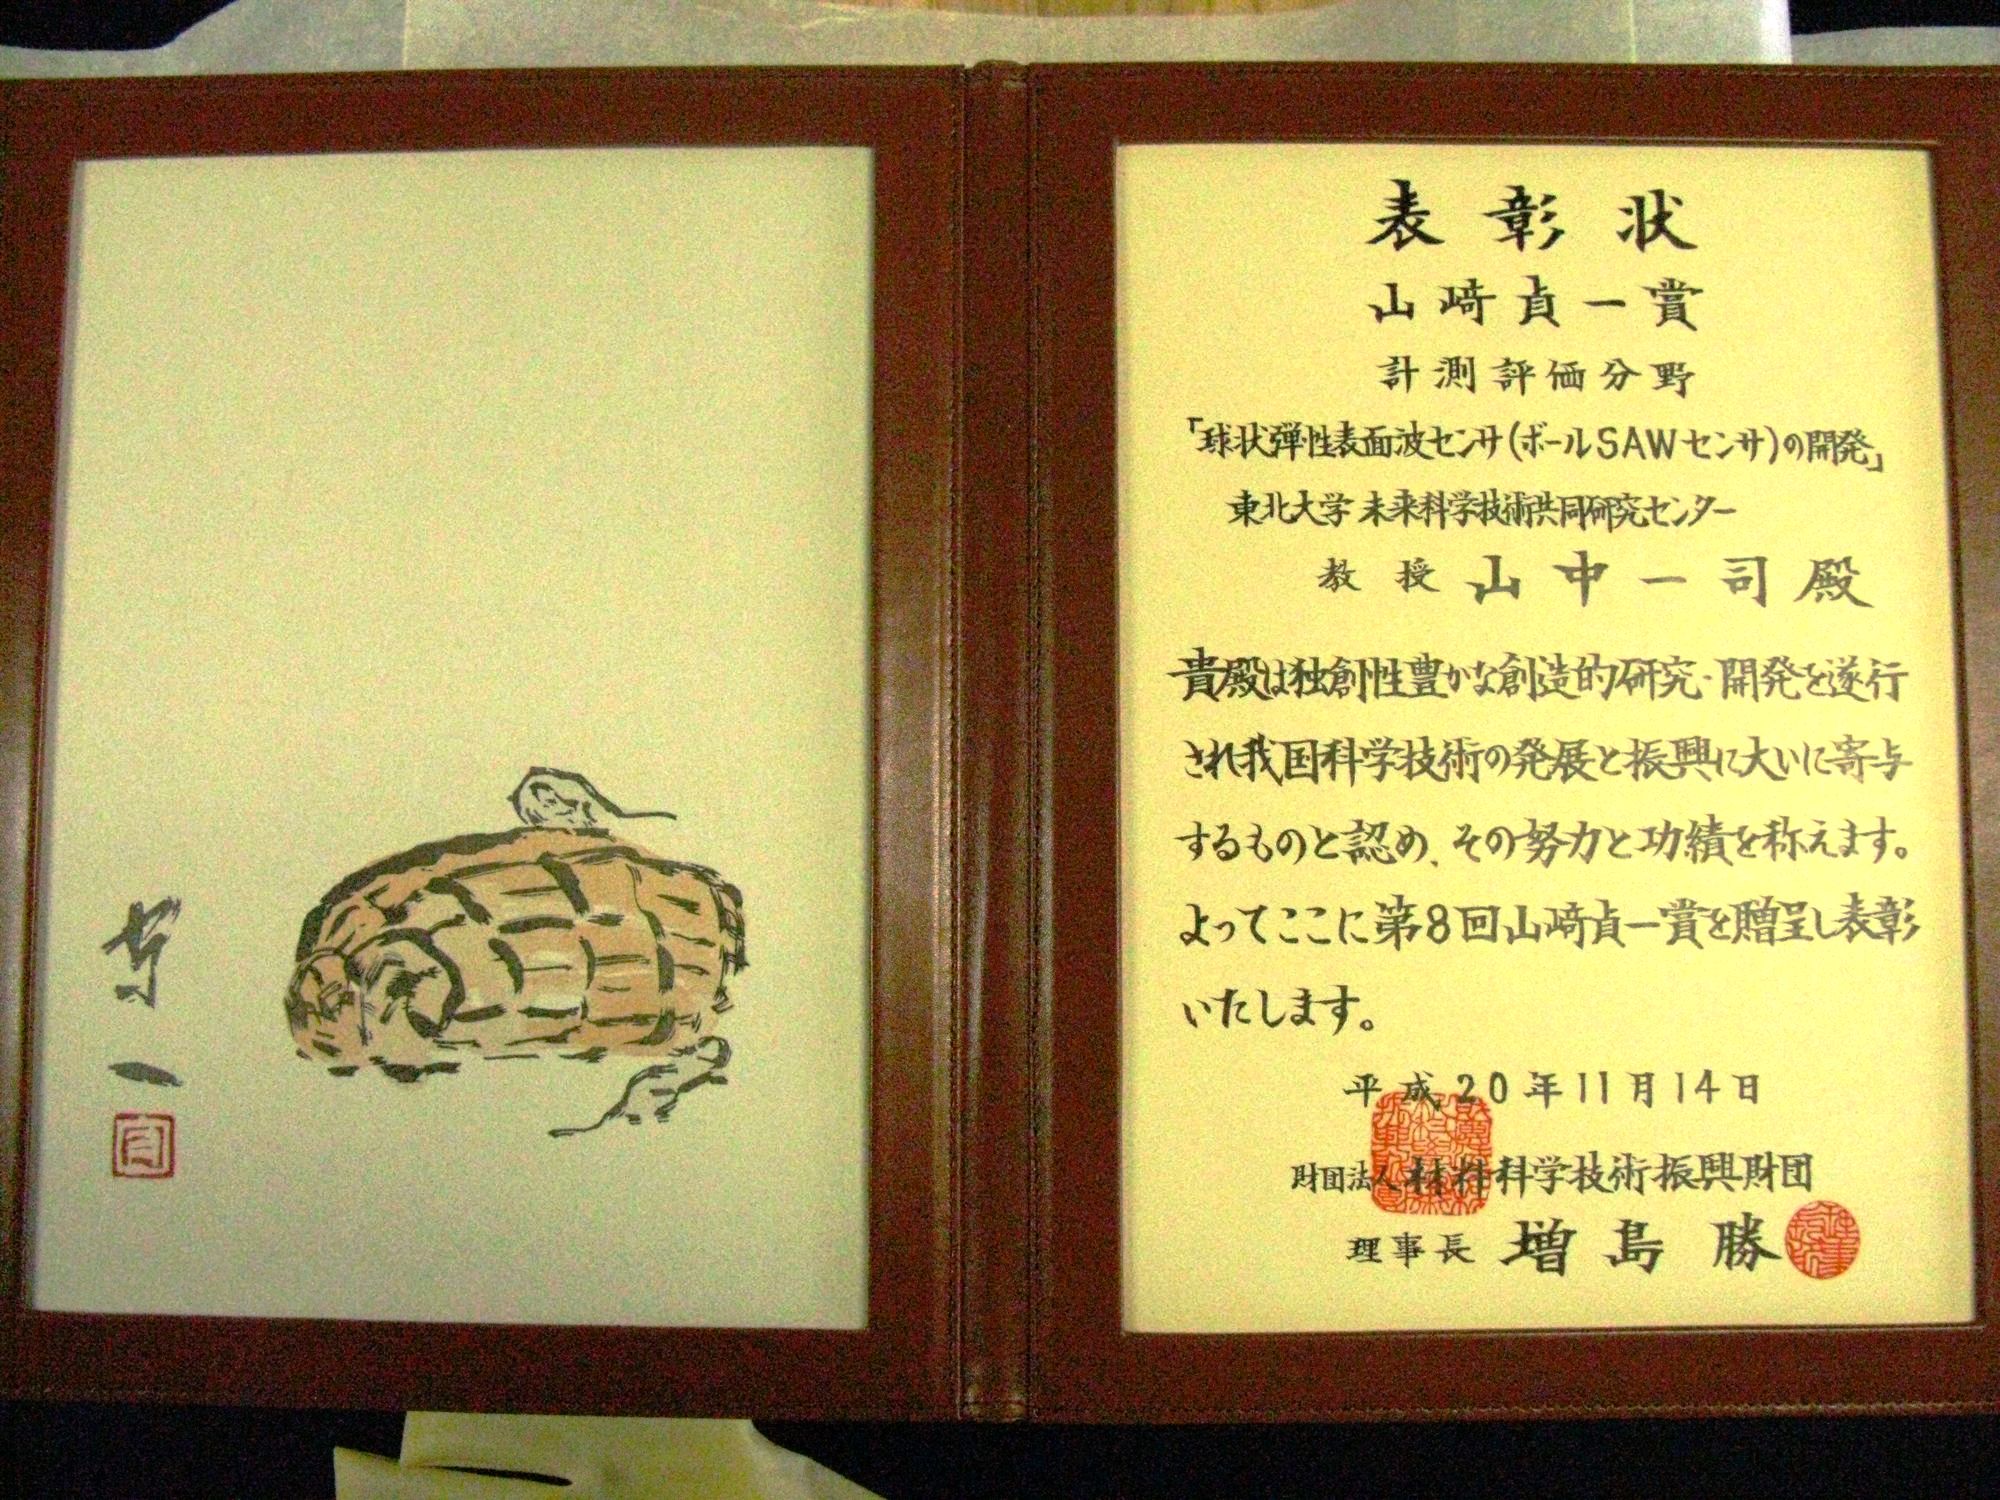 表彰状
山﨑貞一賞
計測評価分野
「球状弾性表面波センサ(ボールSAWセンサ)の開発」
東北大学 未来科学技術共同研究センター
教授 山中一司殿
貴殿は独創性豊かな創造的研究・開発を遂行
され我国科学技術の発展と振興に大いに寄与
するものと認め、その努力と功績を称えます。
よってここに第8回山﨑貞一賞を贈呈し表彰
いたします。
平成20年11月14日
財団法人材料科学技術振興財団
理事長 増島勝